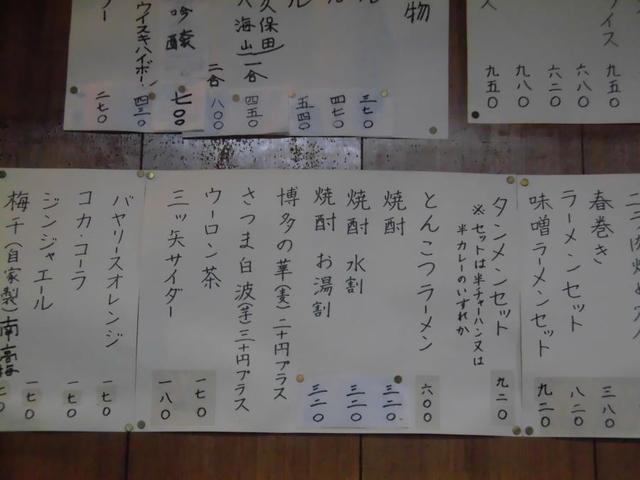 ライス 九五〇
六八〇
六二〇
九八〇
ス 九五〇
物
ル 三七〇
ル 四七〇
ル 五四〇
久保田
八海山 一合 四五〇
二合 八〇〇
吟醸 七〇〇
ウイスキハイボー 四三〇
二七〇
春巻き 三八〇
ラーメンセット 八二〇
味噌ラーメンセット 九二〇
タンメンセット 九二〇
※セットは半チャーハン又は
半カレーのいずれか
とんこつラーメン 六〇〇
焼酎 三二〇
焼酎 水割 三二〇
焼酎 お湯割 三二〇
博多の華(麦)二十円プラス
さつま白波(芋)三十円プラス
ウーロン茶 一七〇
三ッ矢サイダー 一八〇
バヤリースオレンジ 一七〇
コカ・コーラ 一七〇
ジンジャエール 一七〇
梅干(自家製)南高梅